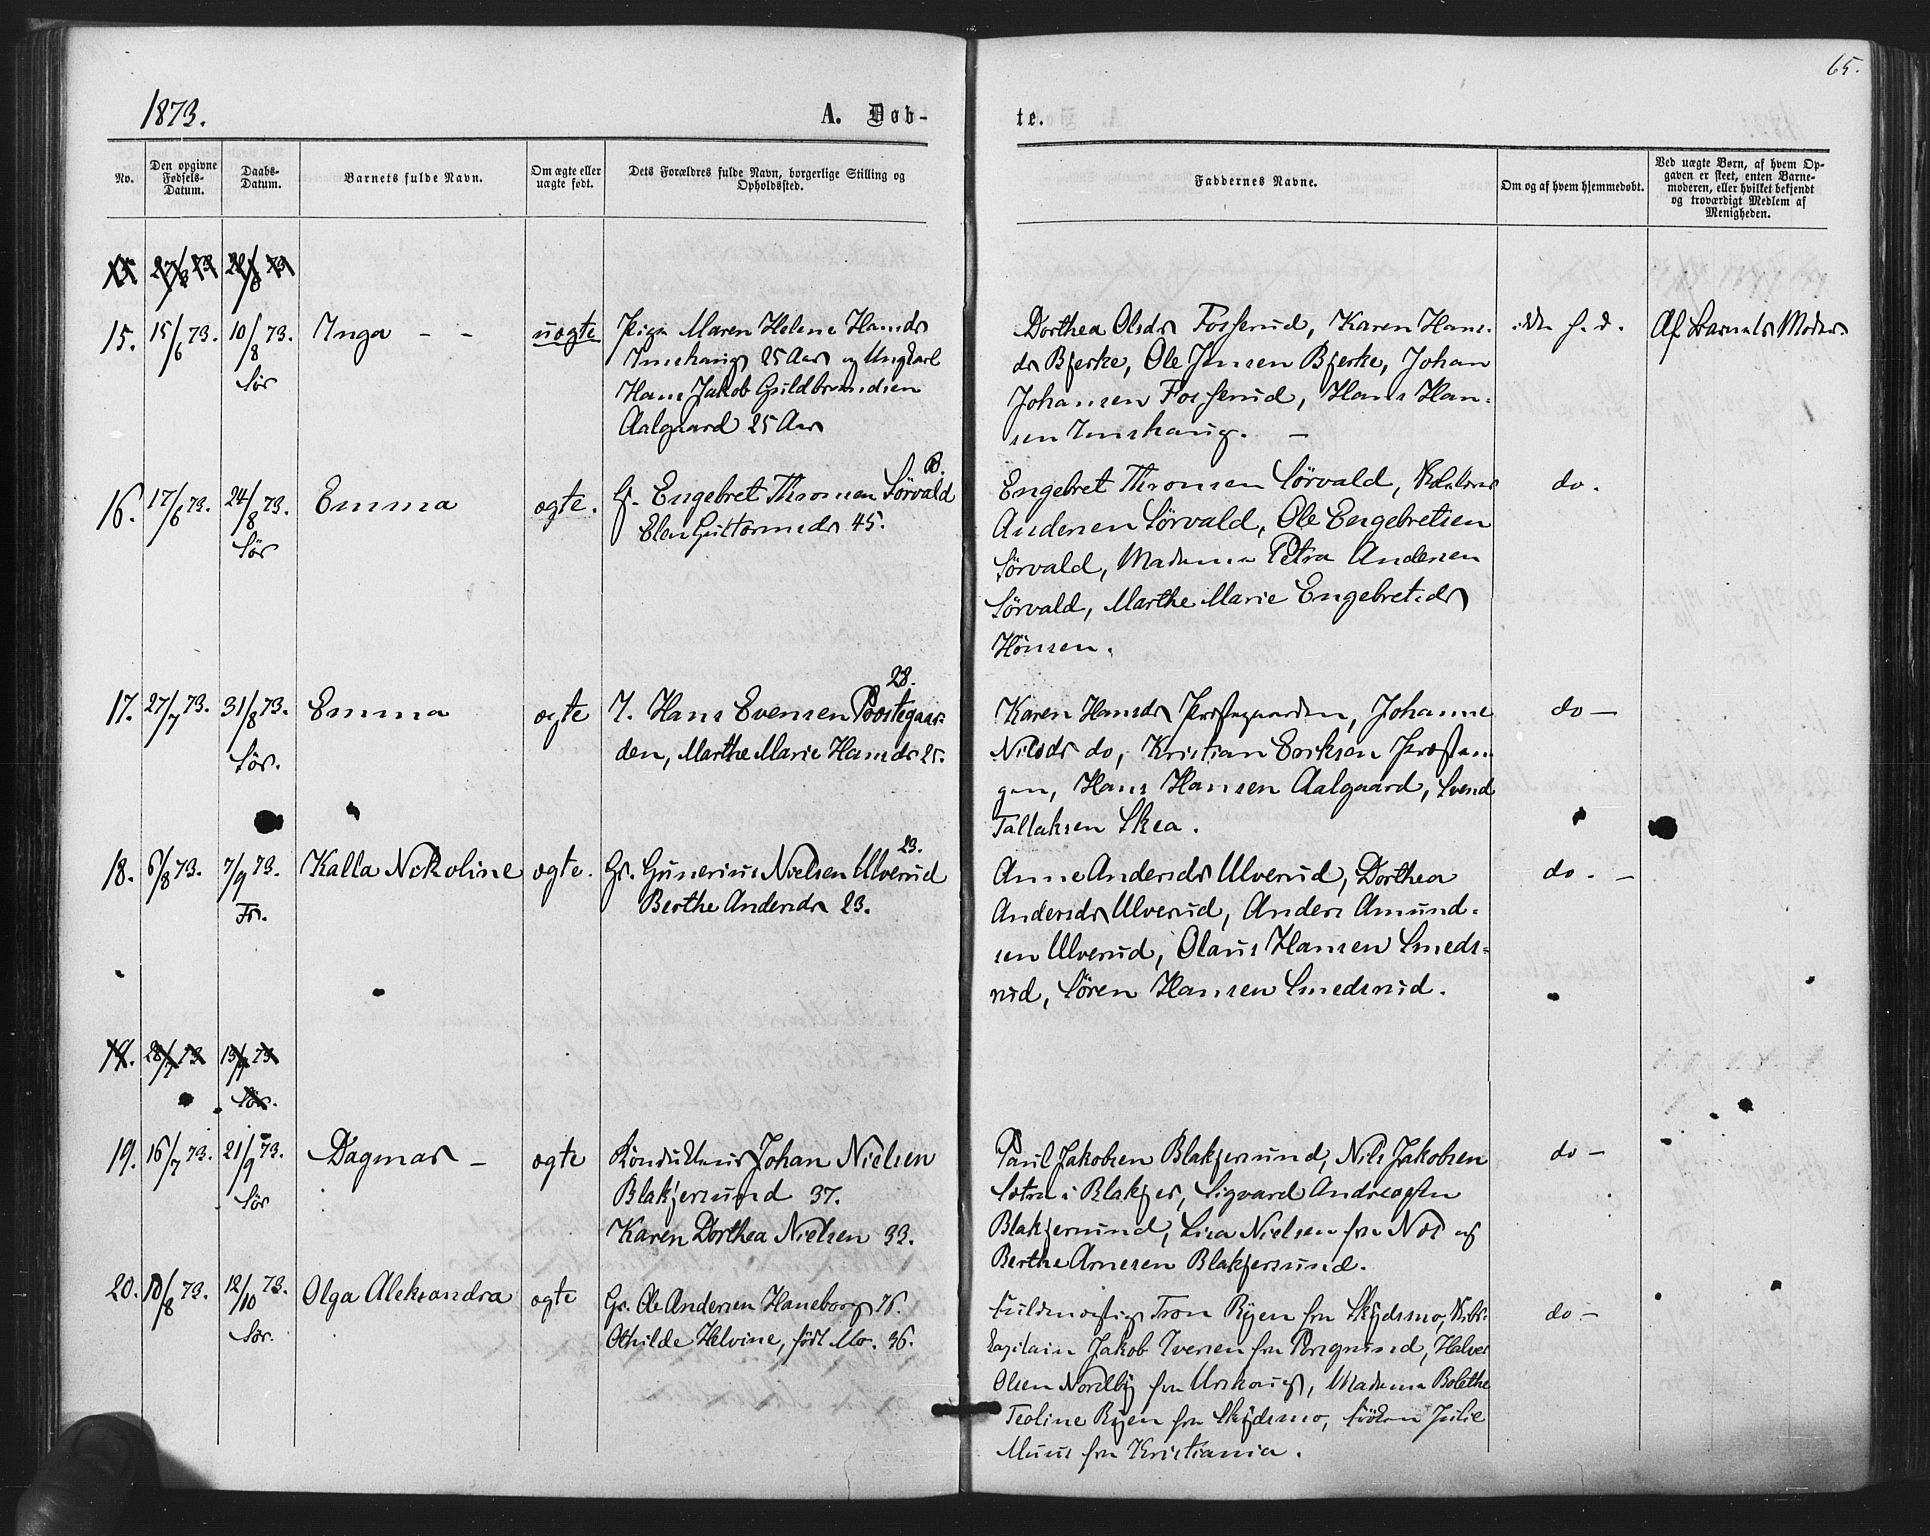 65.
1873.
A. Døb-
te.
No.
Den opgivne Fødsels-Datum.
Daabs-Datum.
Barnets fulde Navn.
Om ægte eller uægte født.
Dets Forældres fulde Navn, borgerlige Stilling og Opholdssted.
Faddernes Navne.
Om og af hvem hjemmedøbt.
Ved uægte Børn, af hvem Op-
gaven er skeet, enten Barne-
moderen, eller hvilket bekjendt
og troværdigt Medlem af
Menigheden.
15. 15/6 73. 10/8 73. Inga – – uægte Pige Maren Helene Hansdr
Sør
25 Aar og Ungkarl
Hans Jakob Guldbrandsen
Aalgaard 25 Aar
Dorthea Olsdr Fosserud, Karen Hans-
dr Bjerke, Ole Jensen Bjerke, Johan
Johansen Fosserud, Hans Han-
sen
Af Barnets Moder.
16. 17/6 73. 24/8 73. Emma ægte. G. Engebret Thronsen Sørvald
Sør
Elen Guttormsdr 45.
Engebret Thronsen Sørvald,
Andersen Sørvald, Ole Engebretsen
Sørvald, Madame Petra Andersen
Sørvald, Marthe Marie Engebretsdr
Hönsen.
do.
17. 27/7 73. 31/8 73. Emma ægte I. Hans Evensen Præstegaar-
28.
Sør.
den, Marthe Marie Hansdr 25.
Karen Hansdr Præstegaarden, Johanne
Nilsdr do, Kristian Eriksen
Hans Hansen Aalgaard, Svend
Tallaksen Skea.
do –
18. 6/8 73. 7/9 73. Kalla Nikoline ægte. Gs. Gunerius Nielsen Ulverud
23.
Fr.
Berthe Andersdr 23.
Anne Andersdr Ulverud, Dorthea
Andersdr Ulverud, Anders Amund-
sen Ulverud, Olaus Hansen Smeds-
rud, Sören Hansen Smedsrud.
do. –
19. 16/7 73. 21/9 73. Dagmar – ægte Kondukteur Johan Nielsen
Sør
Blakjersund 37.
Karen Dorthea Nielsen 33.
Paul Jakobsen Blakjersund, Nils Jakobsen
Sætra i Blakjer, Sigvard Andreasen
Blakjersund, Lisa Nielsen fra Næs og
Berthe Arnesen Blakjersund.
do –
20. 10/8 73. 12/10 73. Olga Aleksandra ægte Gs. Ole Andersen Haneborg 76.
Sør.
Othilde Helvine, født Mo. 36.
Fuldmægtig Tron Ryen fra Skydsmo,
Jakob Iversen fra Porsgrund, Halvor
Olsen Nordby fra Urskoug, Madame Bolethe
Teoline Ryen fra Skydsmo, Fröken Julie
fra Kristiania.
do –